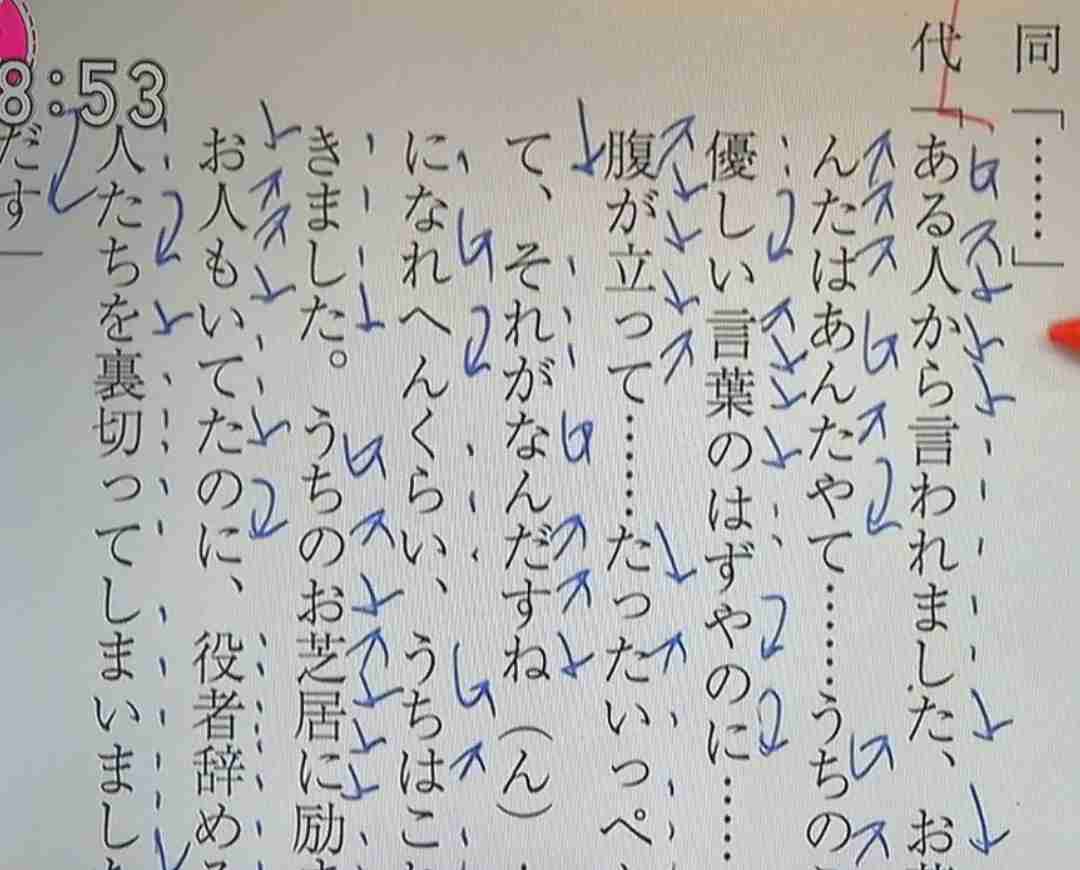 8:53
同「……」
代「ある人から言われました、お
んたはあんたやて……うちの
優しい言葉のはずやのに……
腹が立って……たったいっぺ
て、それがなんだすね(ん)
になれへんくらい、うちはこ
きました。うちのお芝居に励
お人もいてたのに、役者辞め
人たちを裏切ってしまいまし
だす―